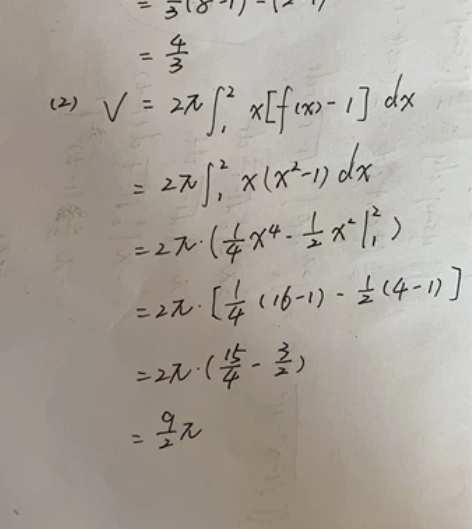 = 1/3(8-1)-(2-1)
= 4/3
(2) V = 2π∫₁² x[f(x)-1] dx
= 2π∫₁² x(x²-1) dx
= 2π·(1/4 x⁴ - 1/2 x² |₁²)
= 2π·[1/4 (16-1) - 1/2 (4-1)]
= 2π·(15/4 - 3/2)
= 9/2 π